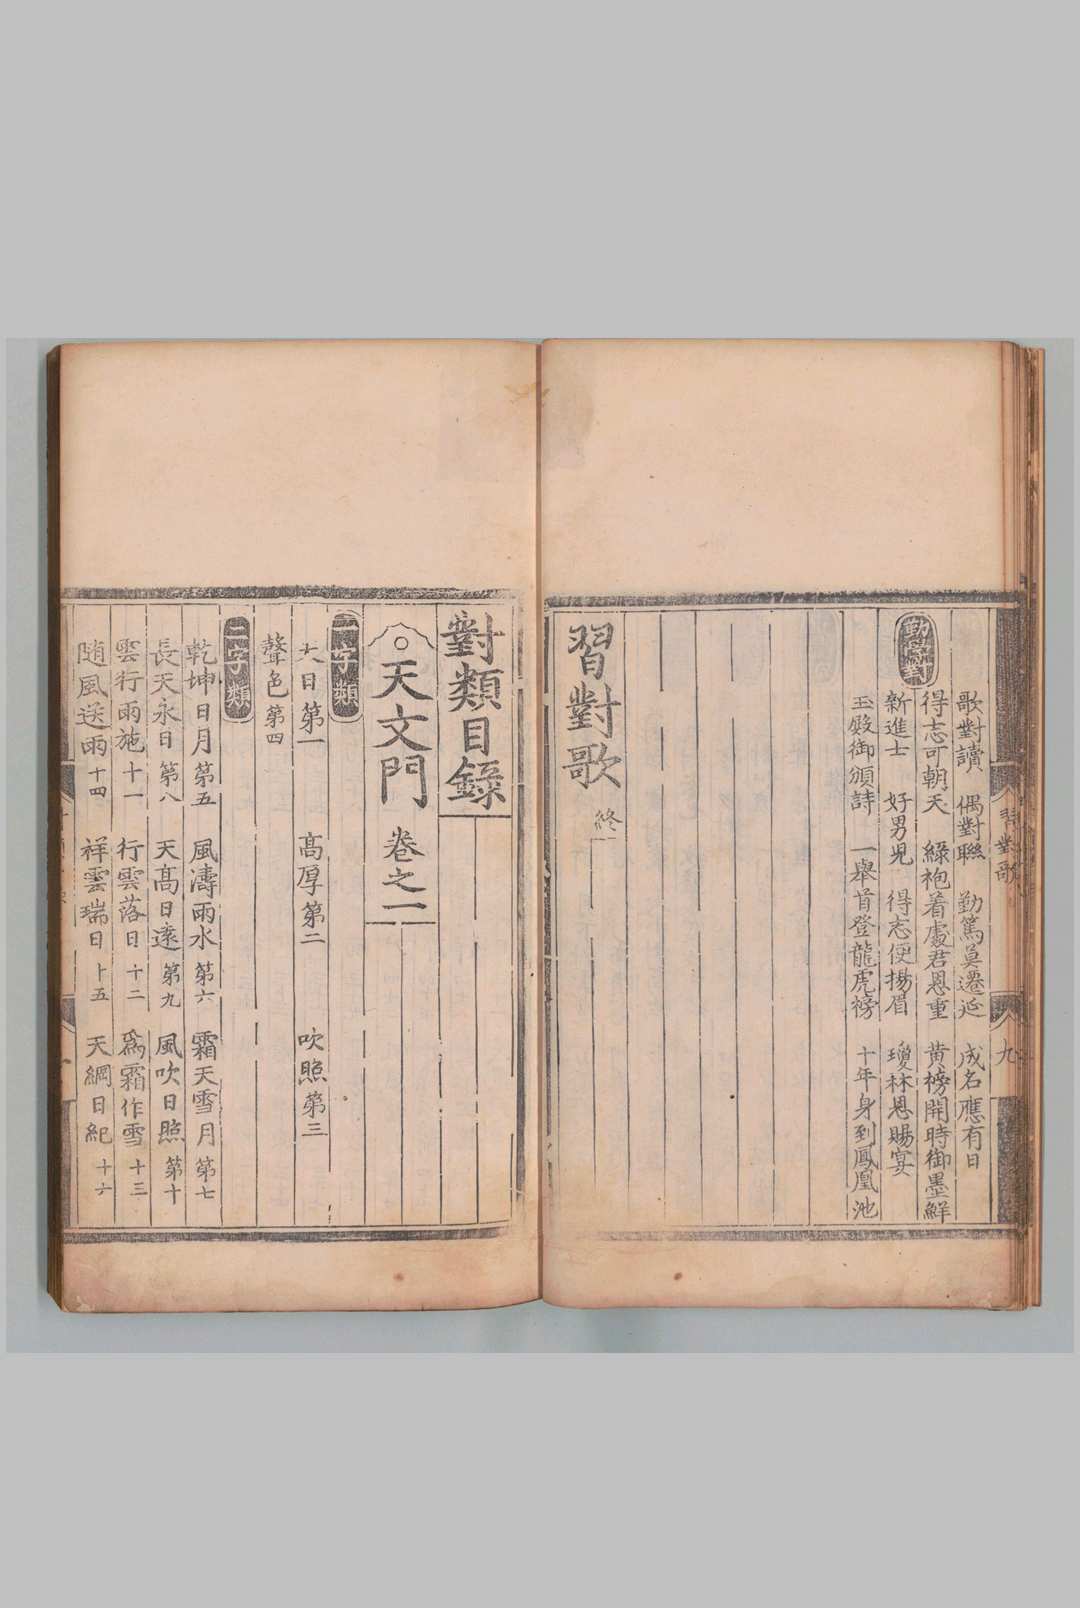 習對歌
九
勤學對
歌對讀 偶對聯 勤篤莫遷延 成名應有日
得志可朝天 綠袍着處君恩重 黃榜開時御墨鮮
新進士 好男兒 得志便揚眉 瓊林恩賜宴
玉殿御頒詩 一舉首登龍虎榜 十年身到鳳凰池
習對歌 終
對類目錄
天文門 卷之一
一字類
天日第一 高厚第二 吹照第三
聲色第四
二字類
乾坤日月第五 風濤雨水第六 霜天雪月第七
長天永日第八 天高日遠第九 風吹日照第十
雲行雨施十一 行雲落日十二 爲霜作雪十三
随風送雨十四 祥雲瑞日十五 天綱日紀十六